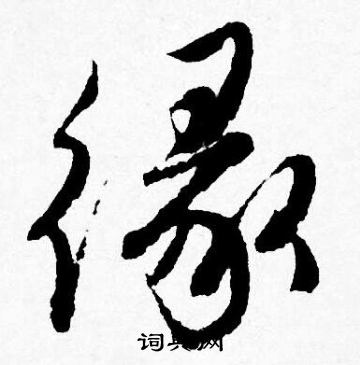 缘
词典网